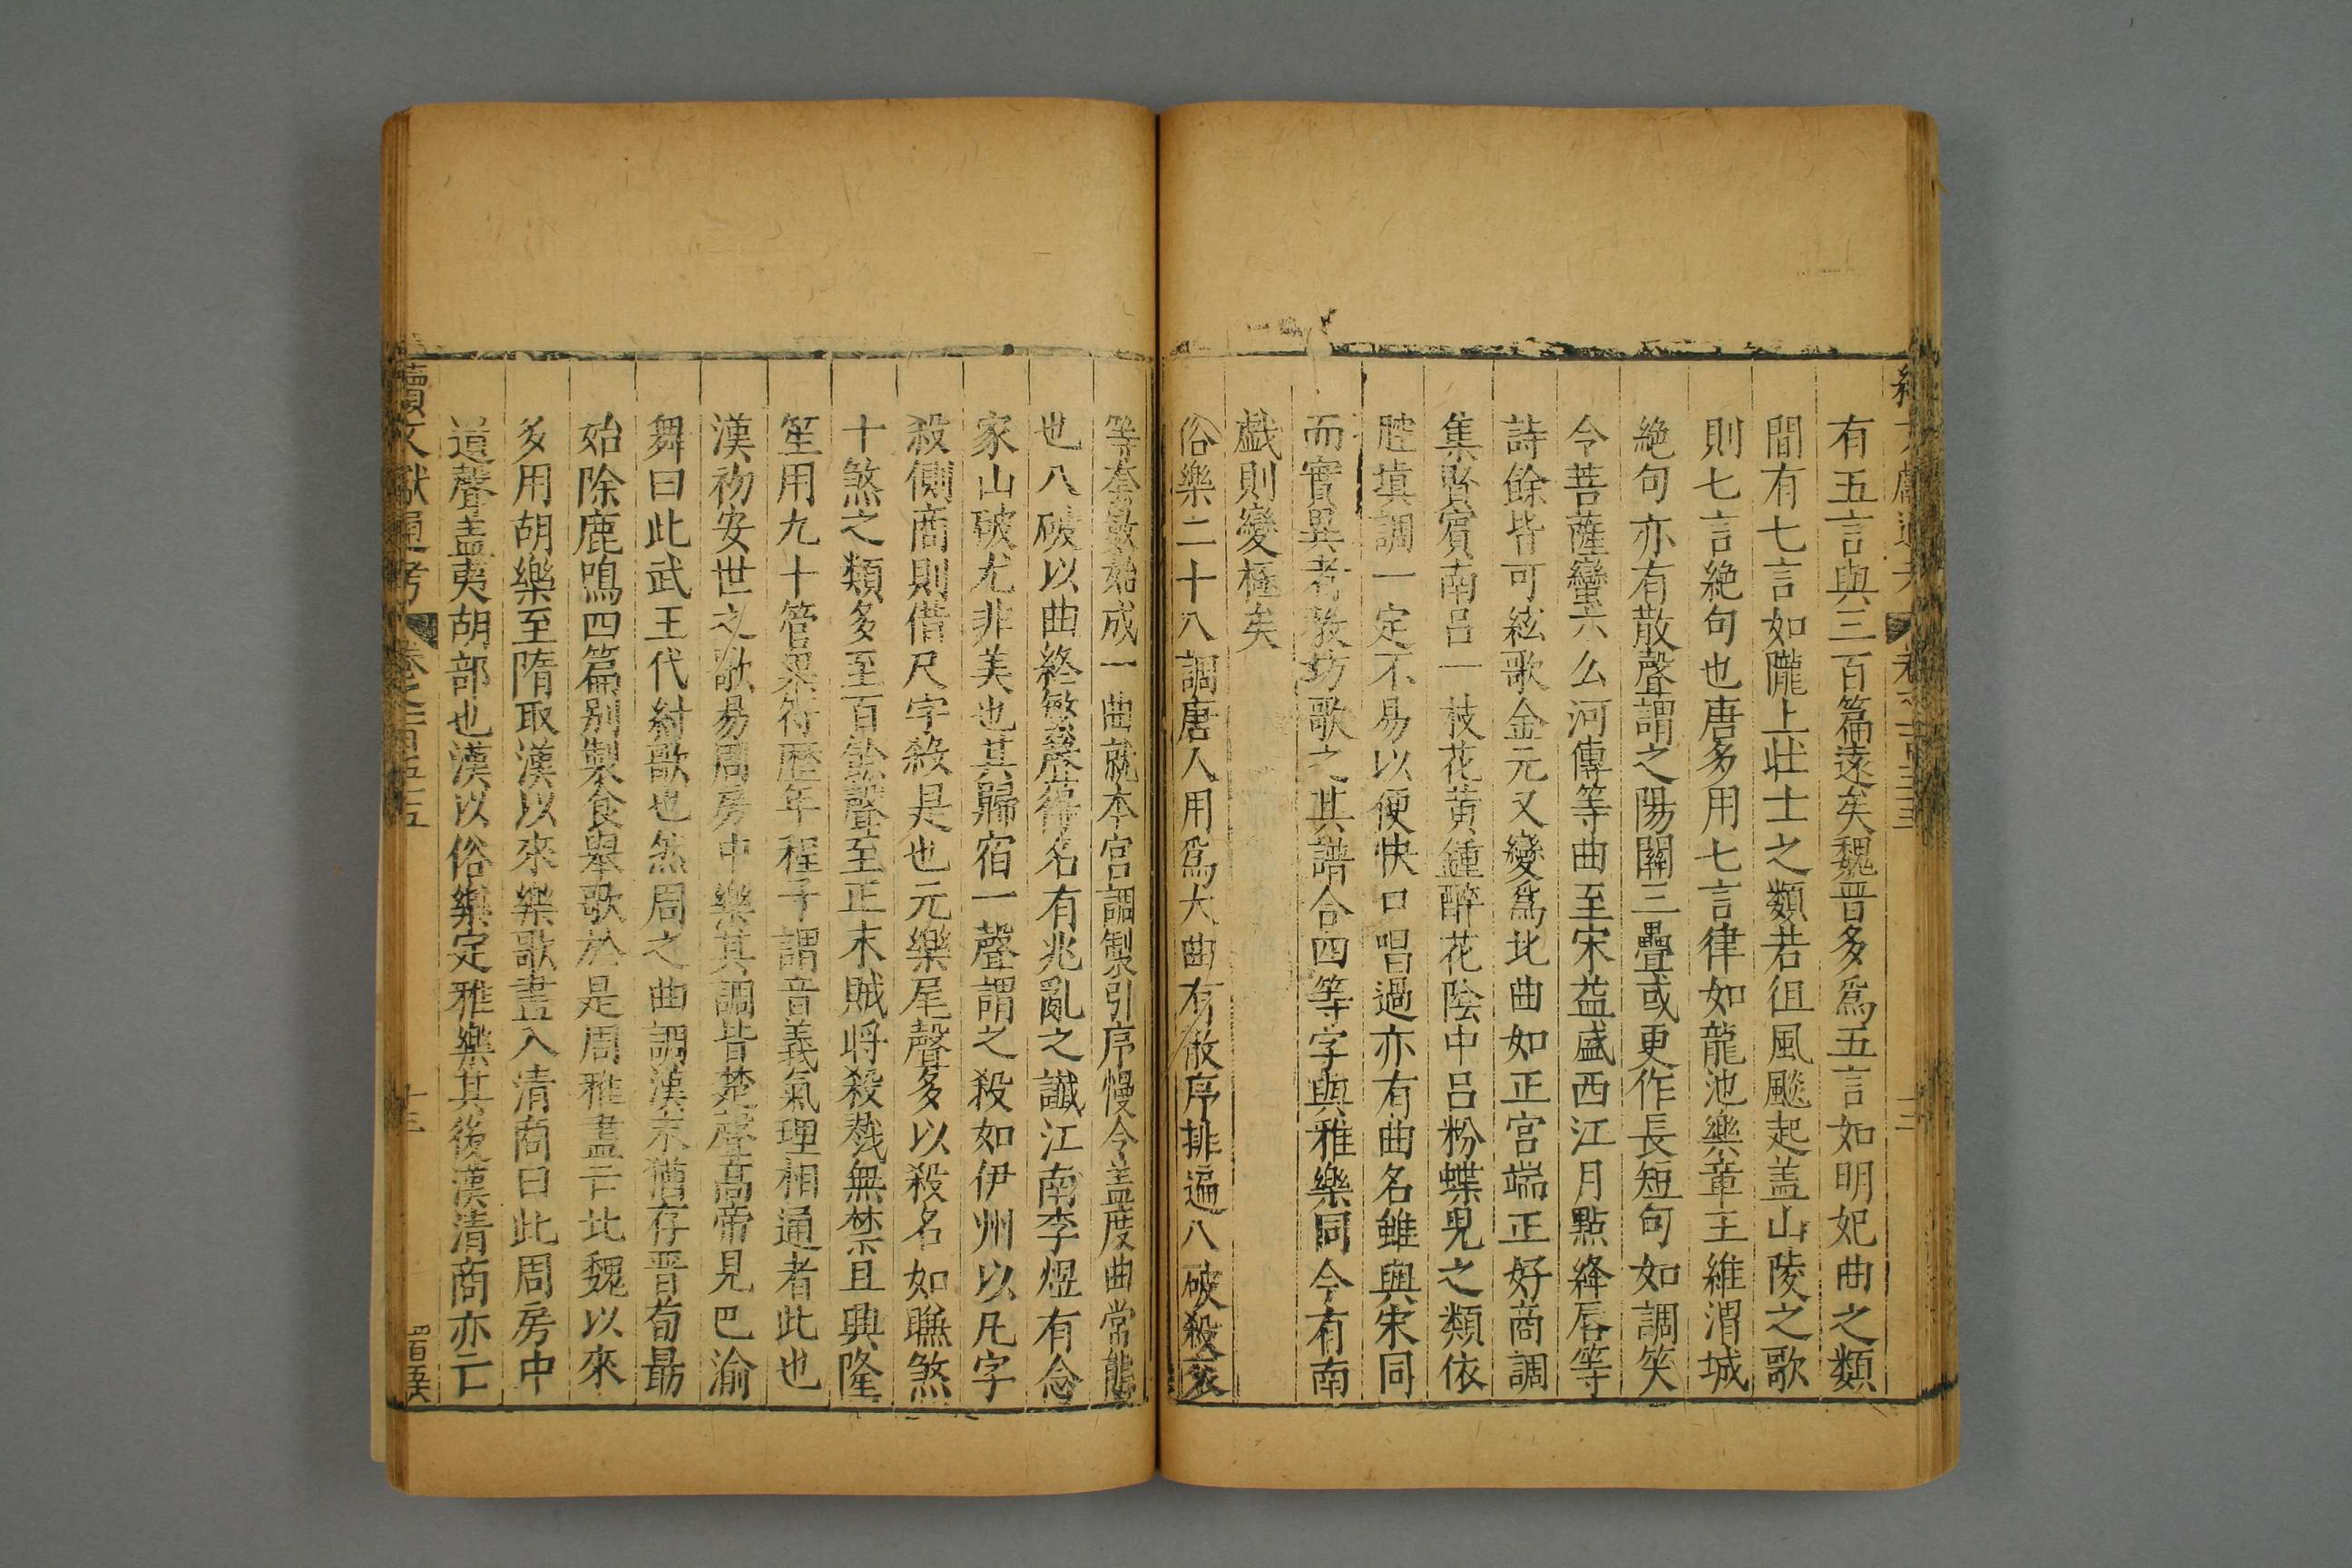 有五言與三百篇遠矣魏晉多爲五言如明妃曲之類
間有七言如隴上壯士之類若徂風颷起盖山陵之歌
則七言絶句也唐多用七言律如龍池樂章王維渭城
絶句亦有散聲謂之陽關三疊或更作長短句如調笑
令菩薩蠻六么河傳等曲至宋益盛西江月點絳唇等
詩餘皆可絃歌金元又變爲北曲如正宮端正好商調
集賢賓南吕一枝花黃鍾醉花陰中呂粉蝶兒之類依
腔填調一定不易以便快口唱過亦有曲名雖與宋同
而實異者教坊歌之其譜合四等字與雅樂同今有南
戯則變極矣
俗樂二十八調唐人用爲大曲有散序排遍八破殺衮
等套數始成一曲就本宮調製引序慢令盖度曲常態
也八破以曲終繁聲得名有兆亂之讖江南李煜有念
家山破尤非美也其歸宿一聲謂之殺如伊州以凡字
殺側商則借尺字殺是也元樂尾聲多以殺名如驀煞
十煞之類多至百餘聲至正末賊将殺戮無禁且興隆
笙用九十管果符歷年程子謂音義氣理相通者此也
漢初安世之歌易周房中樂其調皆楚聲高帝見巴渝
舞曰此武王代紂歌也然周之曲調漢末猶存晋荀勗
始除鹿鳴四篇别製食舉歌於是周雅盡亡此魏以來
多用胡樂至隋取漢以來樂歌盡入清商曰此周房中
道聲盖夷胡部也漢以俗樂定雅樂其後漢清商亦亡
續文獻通考 卷之一百五十五 十三